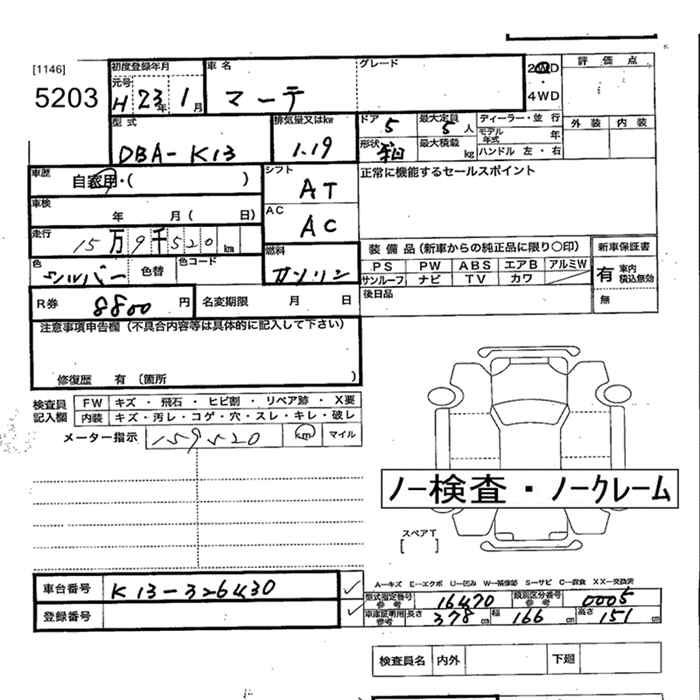 [1146]
5203
初度登録年月
元号
H 23年 1月
車名
マーチ
グレード
2WD
・
4WD
評価点
外装 内装
型式
DBA-K13
排気量又はkw
1.19
ドア
5
最大定員
5人
ディーラー・並行
形状
最大積載
kg
モデル年式
年
ハンドル 左・右
車歴
自家用・( )
シフト
AT
正常に機能するセールスポイント
車検
年 月( 日)
AC
AC
走行
15万9千520km
燃料
ガソリン
装備品(新車からの純正品に限り○印)
新車保証書
PS PW ABS エアB アルミW
サンルーフ ナビ TV カワ
有 車内積込無効
無
色
シルバー
色替
色コード
後日品
R券 8800円
名変期限 月 日
注意事項申告欄(不具合内容等は具体的に記入して下さい)
修復歴 有(箇所 )
検査員記入欄
FW キズ・飛石・ヒビ割・リペア跡・X要
内装 キズ・汚レ・コゲ・穴・スレ・キレ・破レ
メーター指示 159520 km マイル
ノー検査・ノークレーム
スペアT
[ ]
A—キズ E—エクボ U—凹み W—補修跡 S—サビ C—腐食 XX—交換済
車台番号 K13-326430
登録番号
型式指定番号 参考 16470
類別区分番号 参考 0005
車庫証明用 参考 長さ 378cm 幅 166cm 高さ 151cm
検査員名 内外 下廻